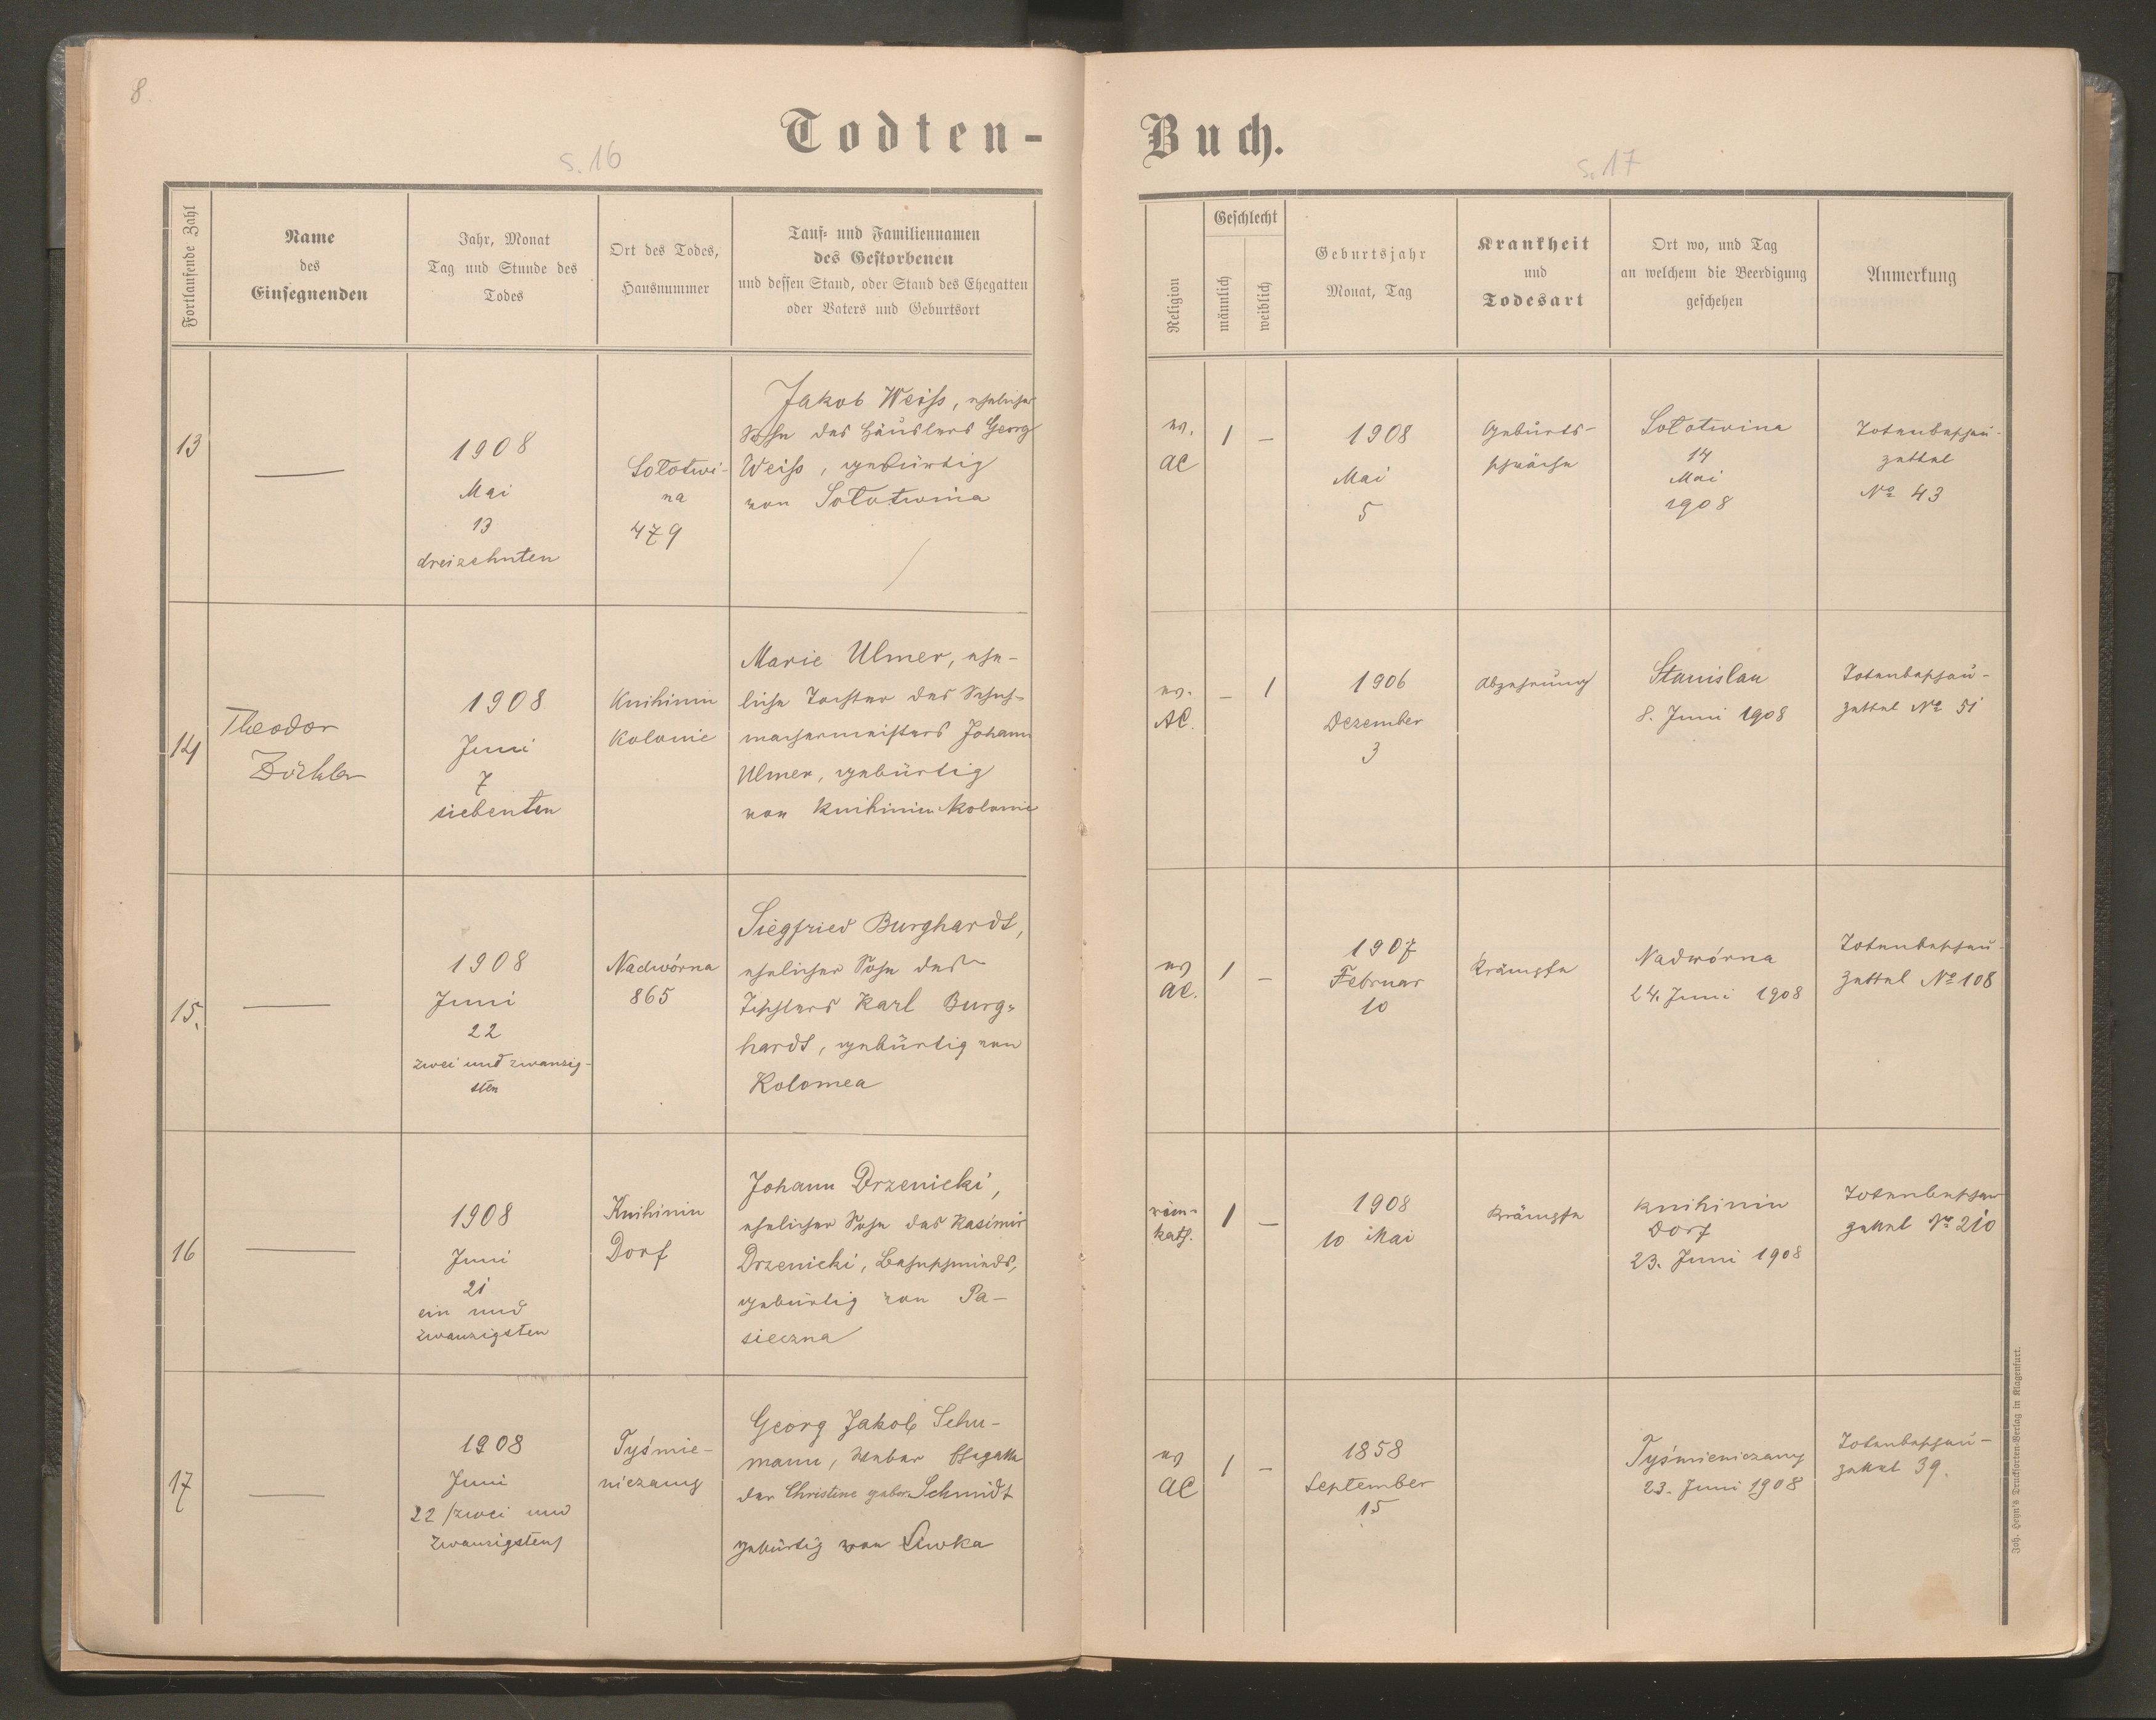 8.
Todten-
Buch.
S. 16
S. 17
Fortlaufende Zahl
Name
des
Einsegnenden
Jahr, Monat
Tag und Stunde des
Todes
Ort des Todes,
Hausnummer
Tauf- und Familiennamen
des Gestorbenen
und dessen Stand, oder Stand des Ehegatten
oder Vaters und Geburtsort
Religion
Geschlecht
männlich
weiblich
Geburtsjahr
Monat, Tag
Krankheit
und
Todesart
Ort wo, und Tag
an welchem die Beerdigung
geschehen
Anmerkung
13
—
1908
Mai
13
dreizehnten
Sołotwi-
na
479
Jakob Weiss, ehelicher
Sohn des Häuslers Georg
Weiss, gebürtig
von Sołotwina
ev.
AC
1
—
1908
Mai
5
Geburts-
schwäche
Sołotwina
14
Mai
1908
Totenbeschau-
zettel
No 43
14
Theodor
Zöckler
1908
Juni
7
siebenten
Knihinin
Kolonie
Marie Ulmer, ehe-
liche Tochter des Schuh-
machermeisters Johann
Ulmer, gebürtig
von Knihinin Kolonie
ev.
AC.
—
1
1906
Dezember
3
Abzehrung
Stanislau
8. Juni 1908
Totenbeschau-
zettel No 51
15.
—
1908
Juni
22
zwei und zwanzig-
sten
Nadwórna
865
Siegfried Burghardt,
ehelicher Sohn des
Tischlers Karl Burg-
hardt, gebürtig von
Kolomea
ev
AC.
1
—
1907
Februar
10
Krämpfe
Nadwórna
24. Juni 1908
Totenbeschau-
zettel No 108
16
—
1908
Juni
21
ein und
zwanzigsten
Knihinin
Dorf
Johann Drzenicki,
ehelicher Sohn des Kasimir
Drzenicki, Bahnschmieds,
gebürtig von Pa-
sieczna
röm-
kath.
1
—
1908
10 Mai
Krämpfe
Knihinin
Dorf
23. Juni 1908
Totenbeschau
zettel No 210
17
—
1908
Juni
22 /zwei und
zwanzigsten/
Tyśmie-
niczany
Georg Jakob Schu-
mann, Weber Ehegatte
der Christine gebor. Schmidt
gebürtig von Siwka
ev
AC
1
—
1858
September
15
Tyśmieniczany
23. Juni 1908
Totenbeschau-
zettel 39.
Joh. Heyn's Drucksorten-Verlag in Klagenfurt.